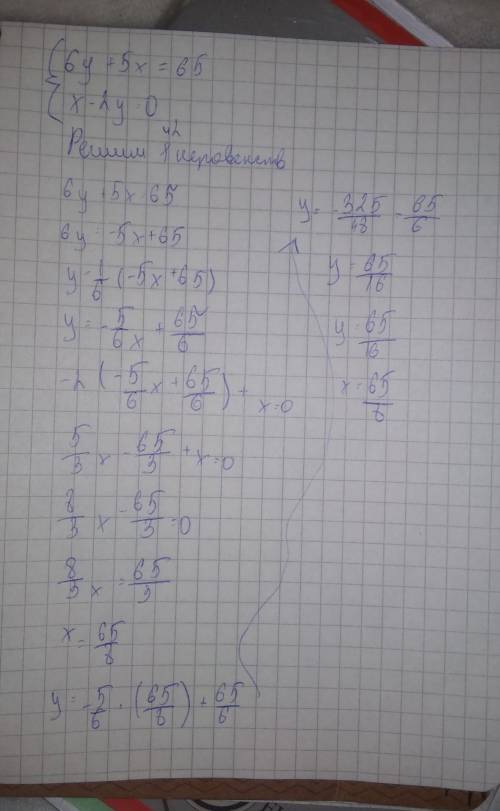 6y + 5x = 65
x - 2y = 0
Решим 1 из
6y + 5x = 65
6y = -5x + 65
y = 1/6 (-5x + 65)
y = -5/6 x + 65/6
-2 (-5/6 x + 65/6) + x = 0
5/3 x - 65/3 + x = 0
8/3 x - 65/3 = 0
8/3 x = 65/3
x = 65/8
y = -5/6 · (65/8) + 65/6
y = -325/48 - 65/6
y = 65/16
y = 65/16
x = 65/8